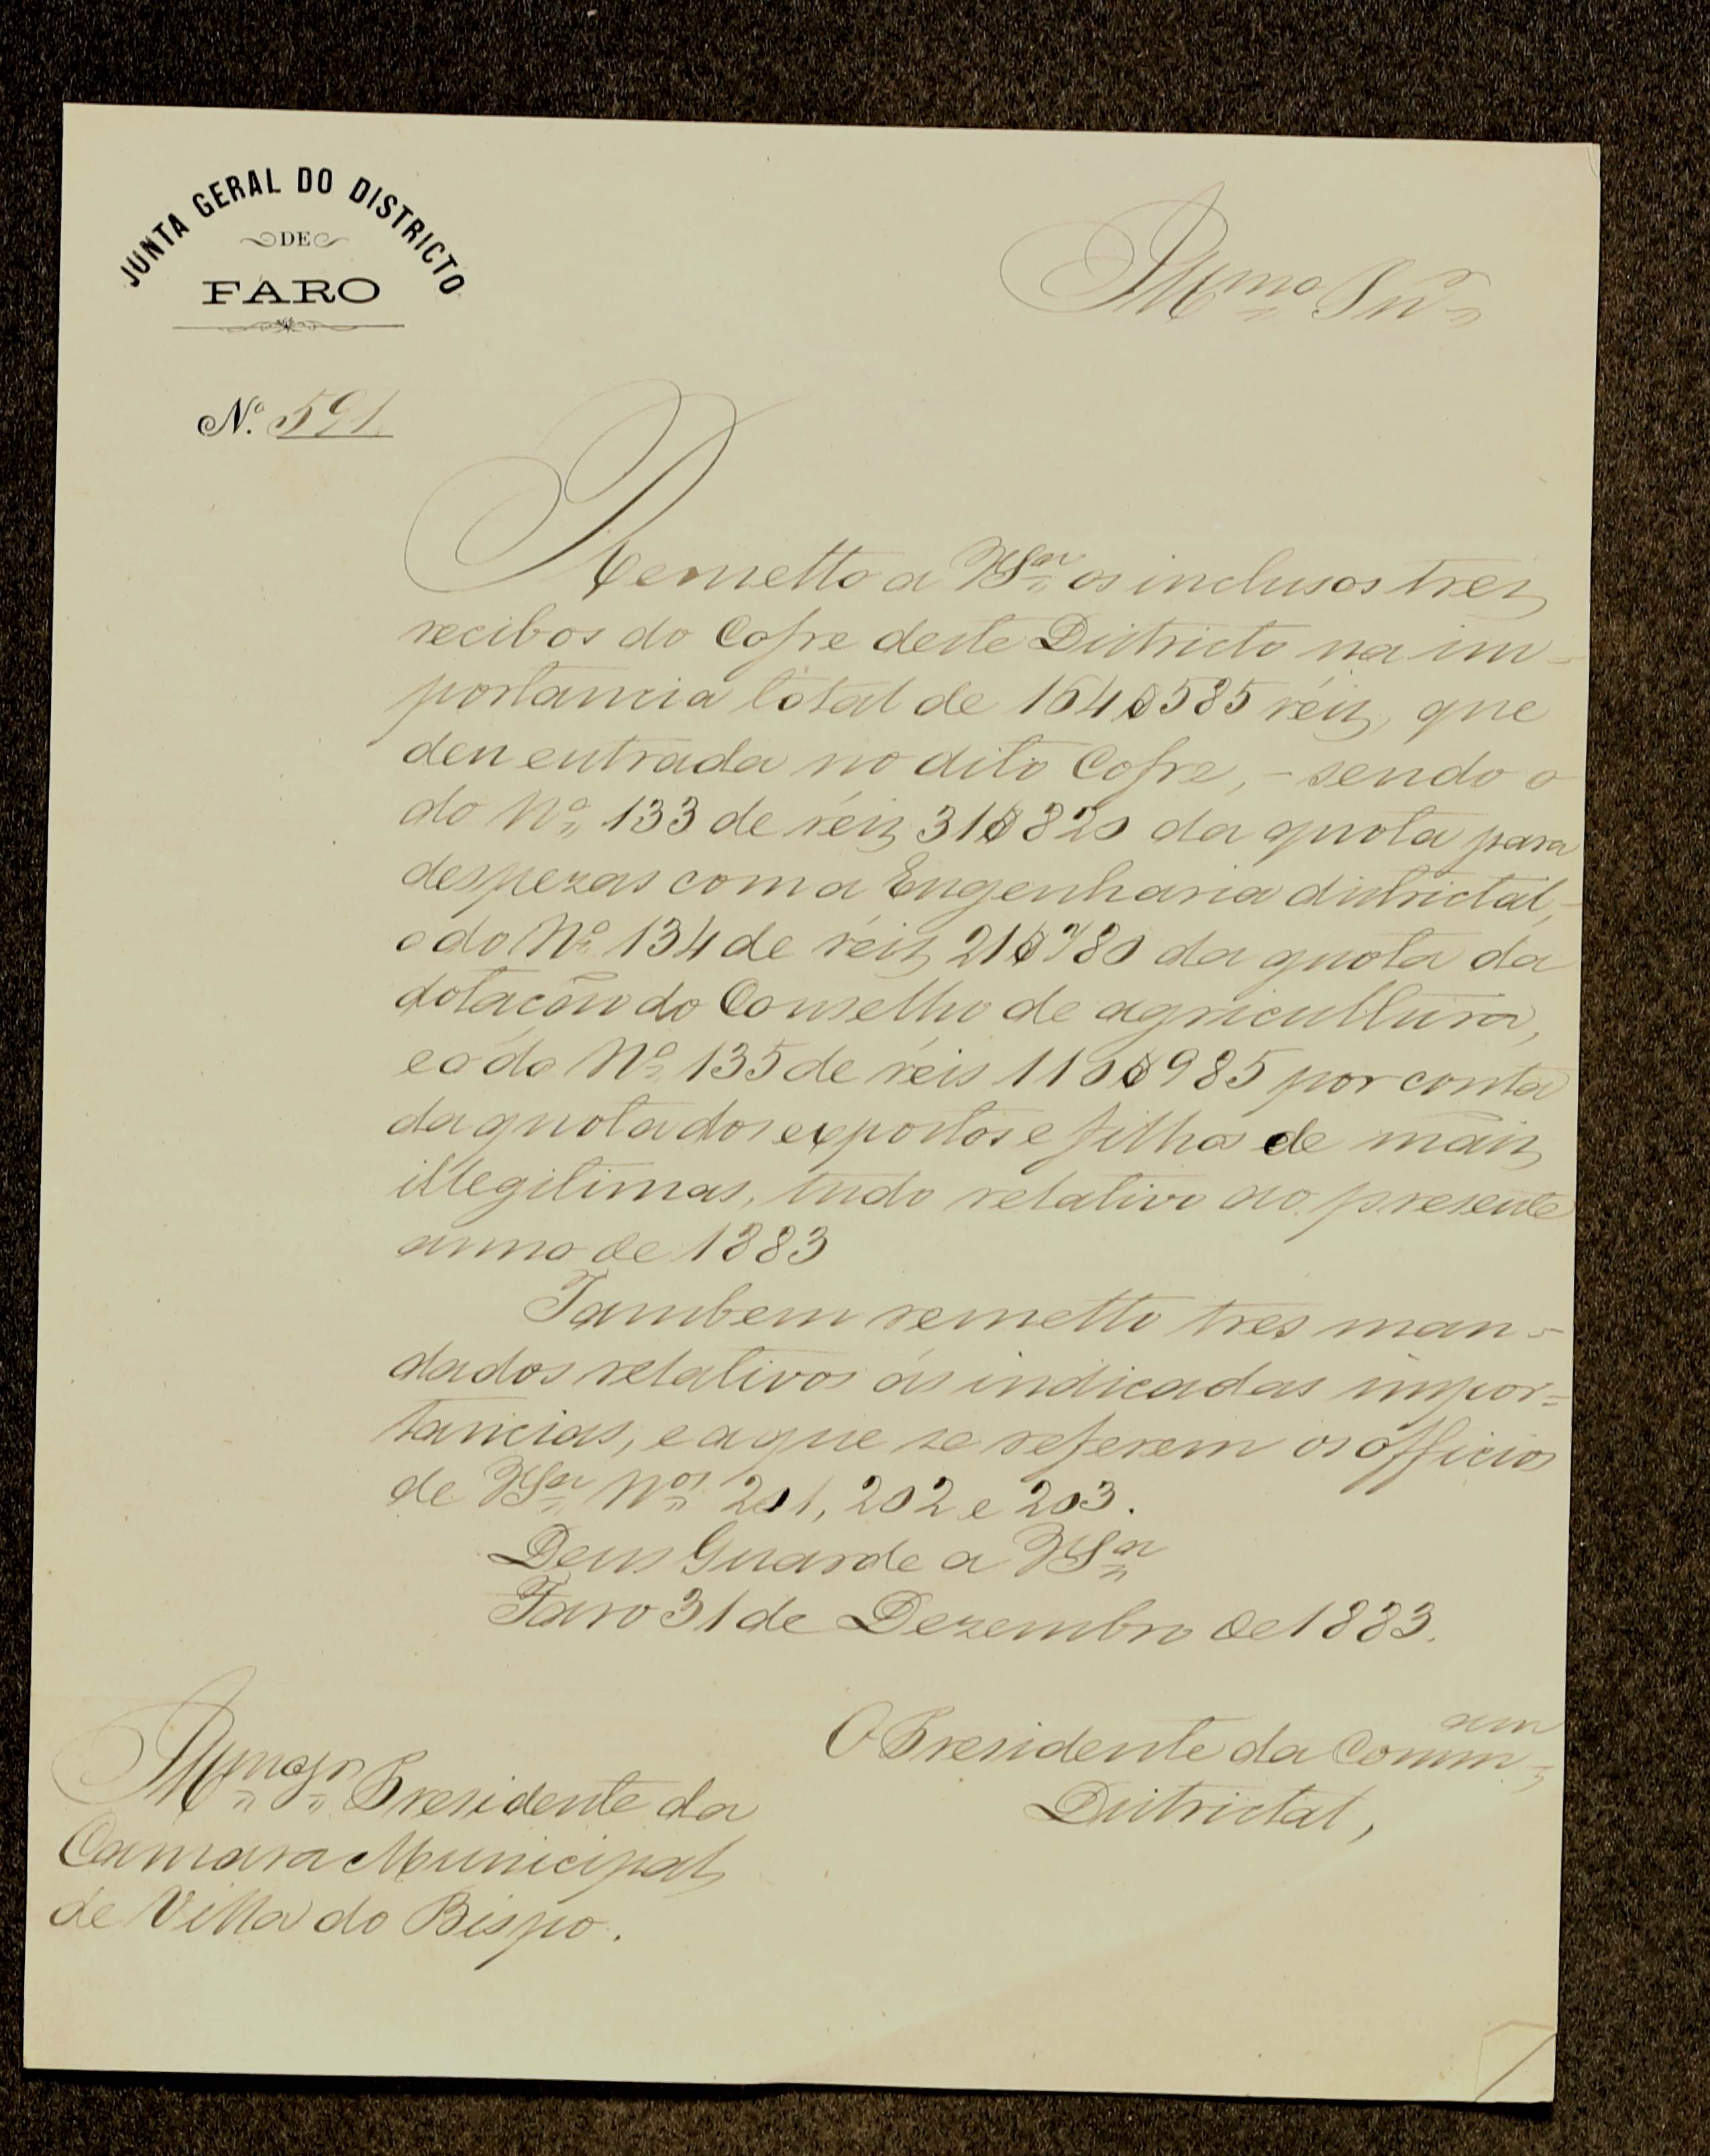 JUNTA GERAL DO DISTRICTO
DE
FARO
Illmo Snr
N.º 591
Remetto a VSª os inclusos trez
recibos do Cofre deste Districto na im-
portancia total de 164$585 réiz, que
deu entrada no dito Cofre, - sendo o
do Nº 133 de réiz 31$820 da quota para
despezas com a Engenharia districtal,
o do Nº 134 de réiz 21$780 da quota da
dotacão do Conselho de agricultura,
e o do Nº 135 de réis 110$985 por conta
da quota dos expostos e filhos de mãiz
illegitimas, tudo relativo ao presente
anno de 1883
Tambem remetto tres man-
dados relativos ás indicadas impor=
tancias, e a que se referem os officios
de VSª Nos 201, 202 e 203.
Deus Guarde a VSª
Faro 31 de Dezembro de 1883.
O Presidente da Commam
Districtal,
Illmo Sr Presidente da
Camara Municipal
de Villa do Bispo.